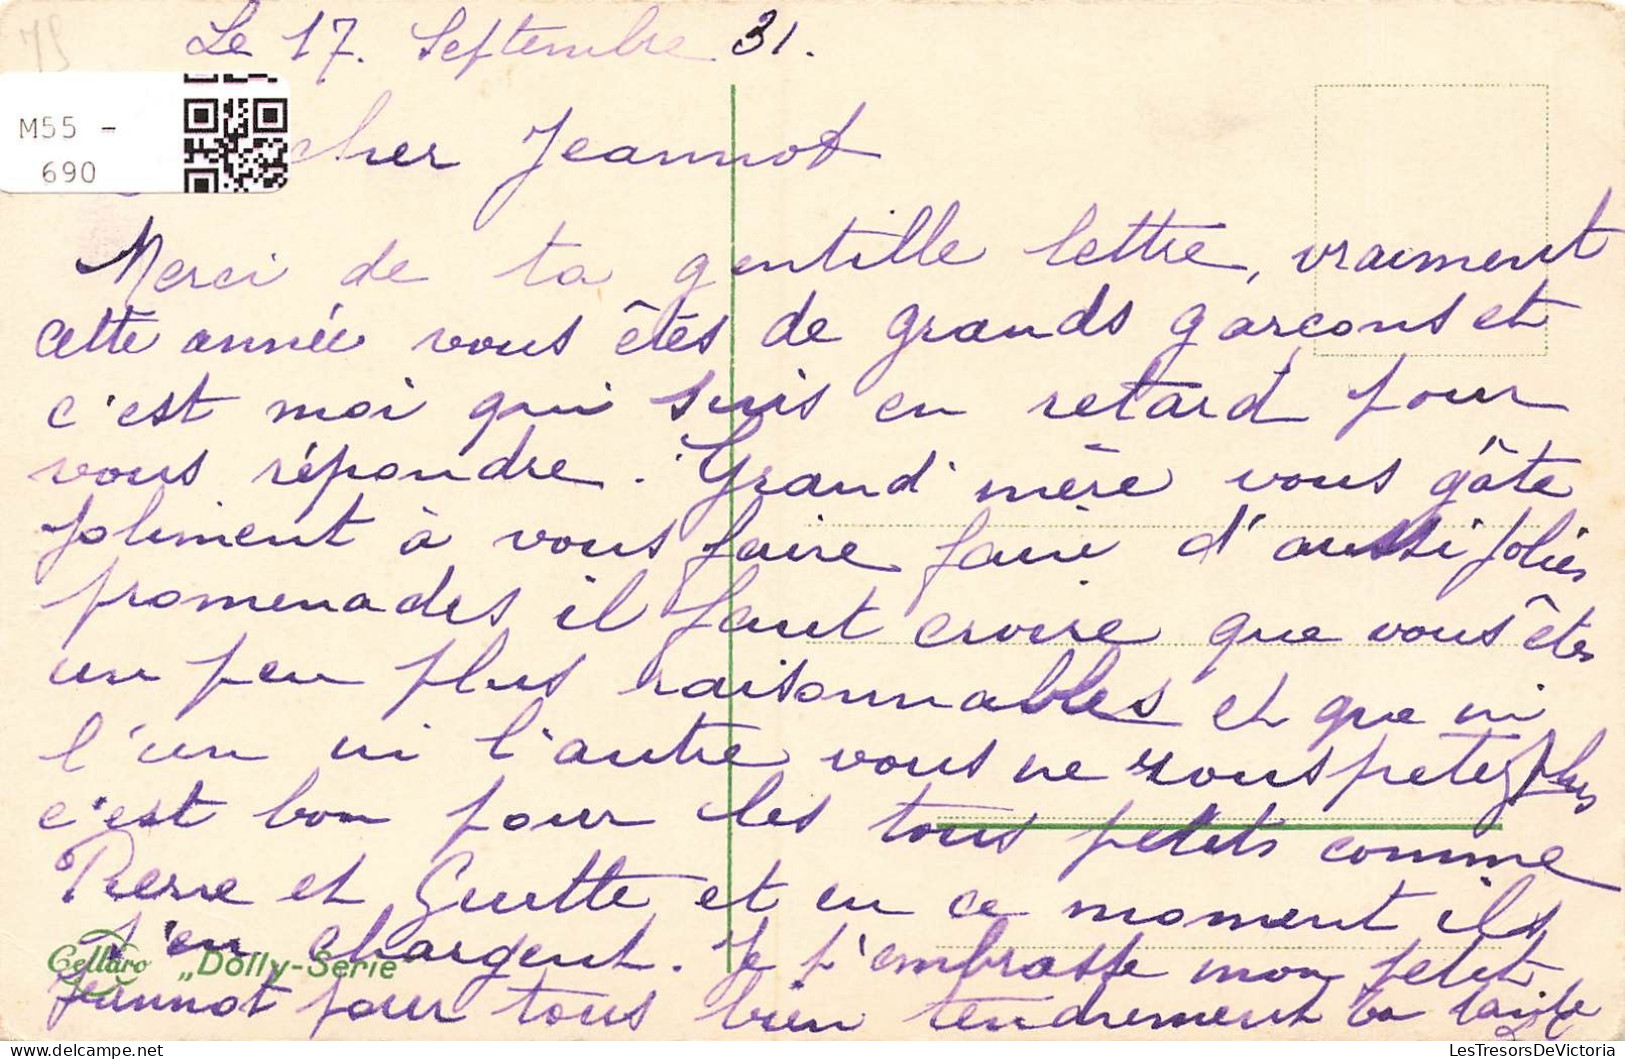 Le 17. Septembre 31.
M55 -
690
cher Jeannot
Merci de ta gentille lettre, vraiment
cette année vous êtes de grands garçons et
c'est moi qui suis en retard pour
vous répondre. Grand'mère vous gâte
joliment à vous faire faire d'aussi jolies
promenades il faut croire que vous êtes
un peu plus raisonnables et que ni
l'un ni l'autre vous ne rouspetez plus
c'est bon pour les tous petits comme
Pierre et Guitte et en ce moment ils
s'en chargent. Je t'embrasse mon petit
Jeannot pour tous bien tendrement ta tante
Cellaro „Dolly-Serie"
LesTresorsDeVictoria